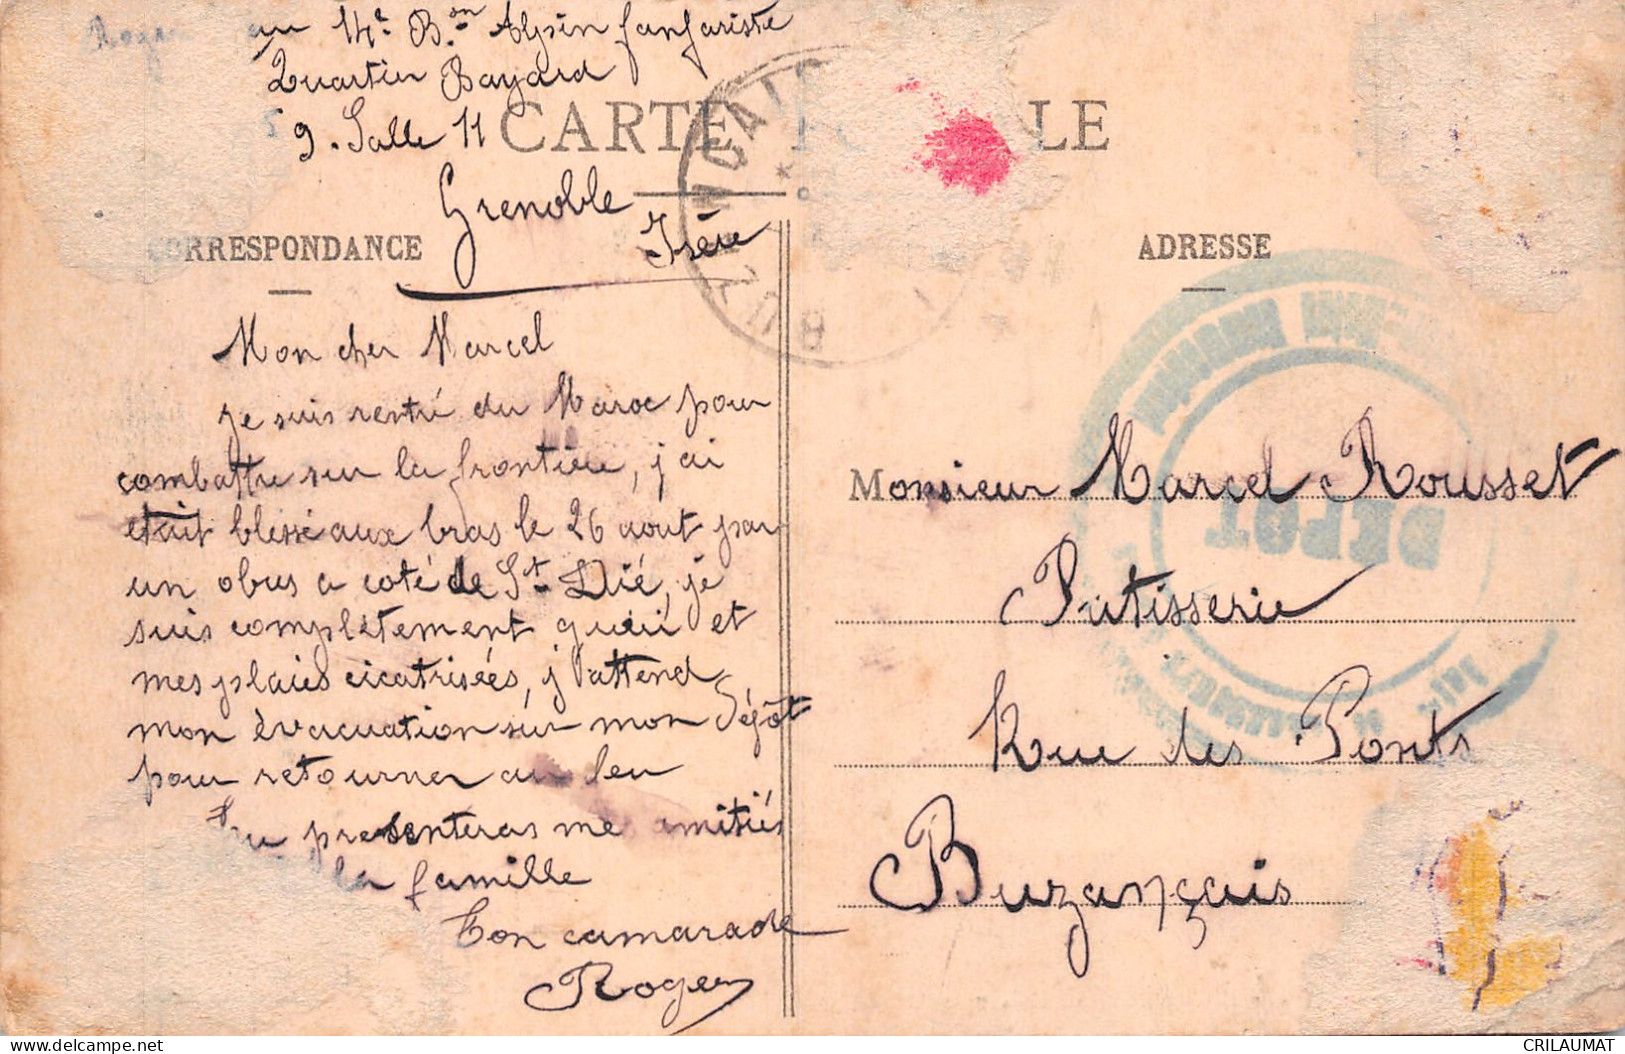 au 14e Bon Alpin fanfariste
Quartier Bayard
9. Salle 11
Grenoble
Isère
CARTE LE
CORRESPONDANCE
ADRESSE
Mon cher Marcel
je suis rentré du Maroc pour
combattre sur la frontière, j ai
etait blessé aux bras le 26 aout par
un obus a coté de St Dié, je
suis complètement guéri et
mes plaies cicatrisées, j'attend
mon évacuation sur mon Dépôt
pour retourner au feu
Tu presenteras mes amitiés
la famille
Ton camarade
Roger
Monsieur Marcel Rousset
Patisserie
Rue des Ponts
Buzançais
BUZANCAIS
DEPOT
CRILAUMAT